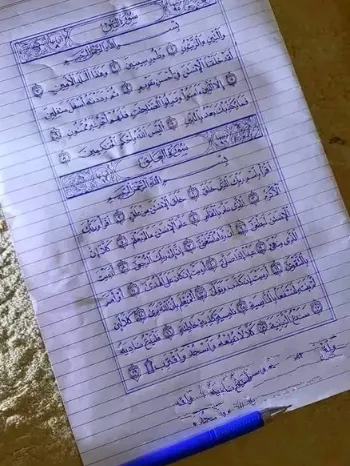 سورة التين
بسم الله الرحمن الرحيم
والتين والزيتون ۝ وطور سينين ۝ وهذا البلد الأمين ۝
لقد خلقنا الإنسان في أحسن تقويم ۝ ثم رددناه أسفل سافلين
۝ إلا الذين آمنوا وعملوا الصالحات فلهم أجر غير ممنون ۝
فما يكذبك بعد بالدين ۝ أليس الله بأحكم الحاكمين ۝
سورة العلق
بسم الله الرحمن الرحيم
اقرأ باسم ربك الذي خلق ۝ خلق الإنسان من علق ۝ اقرأ وربك
الأكرم ۝ الذي علم بالقلم ۝ علم الإنسان ما لم يعلم ۝ كلا إن
الإنسان ليطغى ۝ أن رآه استغنى ۝ إن إلى ربك الرجعى ۝ أرأيت
الذي ينهى ۝ عبدا إذا صلى ۝ أرأيت إن كان على الهدى ۝ أو أمر
بالتقوى ۝ أرأيت إن كذب وتولى ۝ ألم يعلم بأن الله يرى ۝ كلا لئن
لم ينته لنسفعا بالناصية ۝ ناصية كاذبة خاطئة ۝ فليدع ناديه ۝
سندع الزبانية ۝ كلا لا تطعه واسجد واقترب ۝